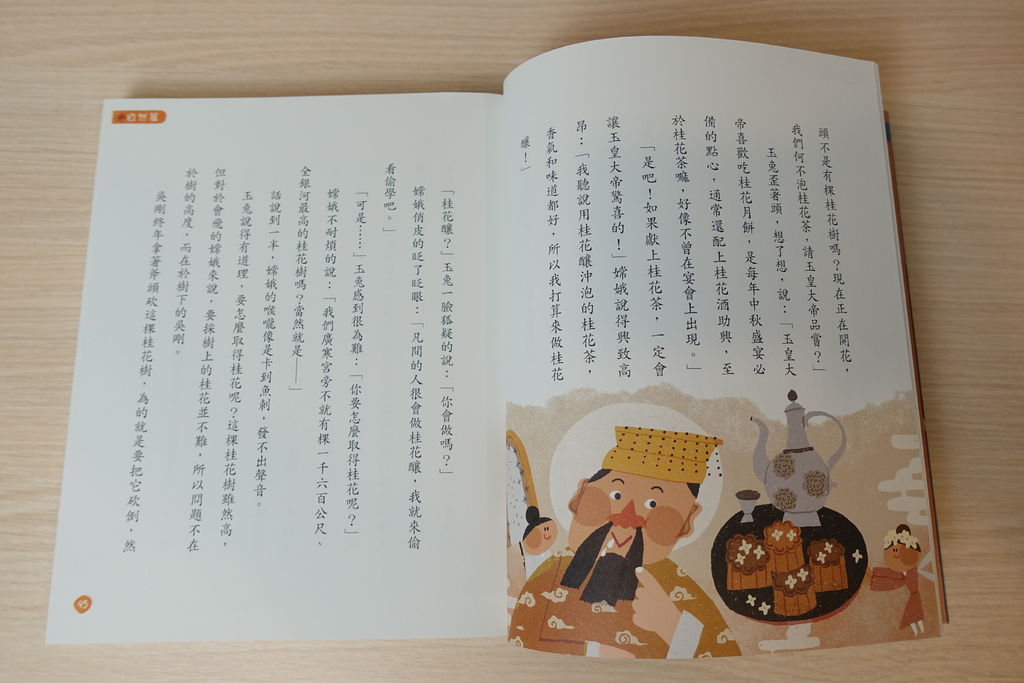 頭不是有棵桂花樹嗎？現在正在開花，
我們何不泡桂花茶，請玉皇大帝品嘗？」
玉兔歪著頭，想了想，說：「玉皇大
帝喜歡吃桂花月餅，是每年中秋盛宴必
備的點心，通常還配上桂花酒助興，至
於桂花茶嘛，好像不曾在宴會上出現。」
「是吧！如果獻上桂花茶，一定會
讓玉皇大帝驚喜的！」嫦娥說得興致高
昂：「我聽說用桂花釀沖泡的桂花茶，
香氣和味道都好，所以我打算來做桂花
釀！」
自然篇
「桂花釀？」玉兔一臉狐疑的說：「你會做嗎？」
嫦娥俏皮的眨了眨眼：「凡間的人很會做桂花釀，我就來偷
看偷學吧。」
「可是……」玉兔感到很為難：「你要怎麼取得桂花呢？」
嫦娥不耐煩的說：「我們廣寒宮旁不就有棵一千六百公尺、
全銀河最高的桂花樹嗎？當然就是——」
話說到一半，嫦娥的喉嚨像是卡到魚刺，發不出聲音。
玉兔說得有道理，要怎麼取得桂花呢？這棵桂花樹雖然高，
但對於會飛的嫦娥來說，要採樹上的桂花並不難，所以問題不在
於樹的高度，而在於樹下的吳剛。
吳剛終年拿著斧頭砍這棵桂花樹，為的就是要把它砍倒，然
95